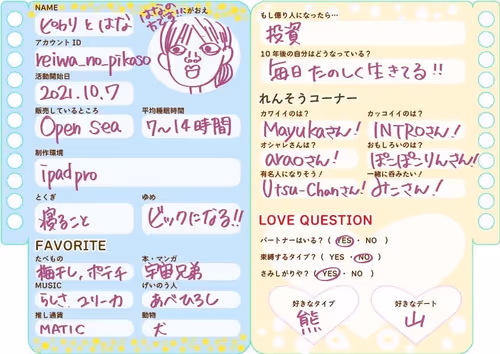 NAME
ひわりとはな
はなの
かお です!
にがおえ
アカウント ID
reiwa_no_pikaso
活動開始日
2021.10.7
販売しているところ
Open sea
平均睡眠時間
7〜14時間
制作環境
ipad pro
とくぎ
寝ること
ゆめ
ビックになる!!
FAVORITE
たべもの
梅干し、ポテチ
本・マンガ
宇宙兄弟
MUSIC
らしさ、ユリーカ
げいのう人
あべひろし
推し通貨
MATIC
動物
犬
もし億り人になったら…
投資
10年後の自分はどうなっている?
毎日たのしく生きてる!!
れんそうコーナー
カワイイのは?
Mayukaさん!
カッコイイのは?
INTROさん!
オシャレさんは?
araoさん!
おもしろいのは?
ぽーぽーりんさん!!
有名人になりそう!
Utsu-Chanさん!
一緒に呑みたい!
みこさん!
LOVE QUESTION
パートナーはいる? ( YES ・ NO )
束縛するタイプ? ( YES ・ NO )
さみしがりや? ( YES ・ NO )
好きなタイプ
熊
好きなデート
山